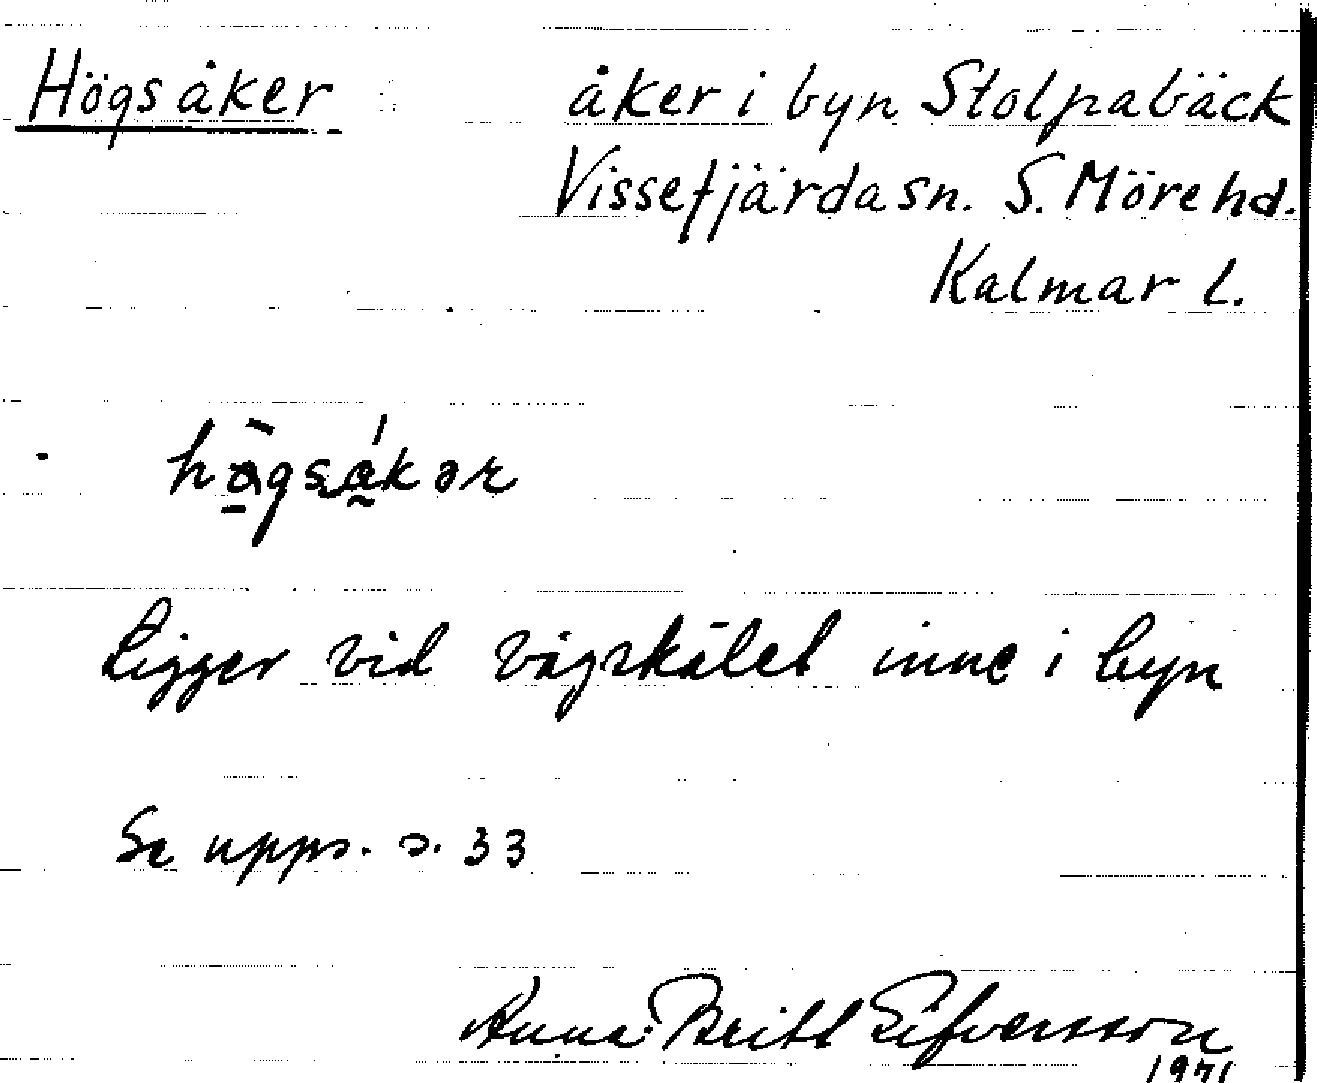 Högsåker åker i byn Stolpabäck
Vissefjärda sn. S. Möre hd.
Kalmar l.
Ligger vid vägskälet inne i byn
Se upps. s. 33
Anna-Britt Sifversson
1971